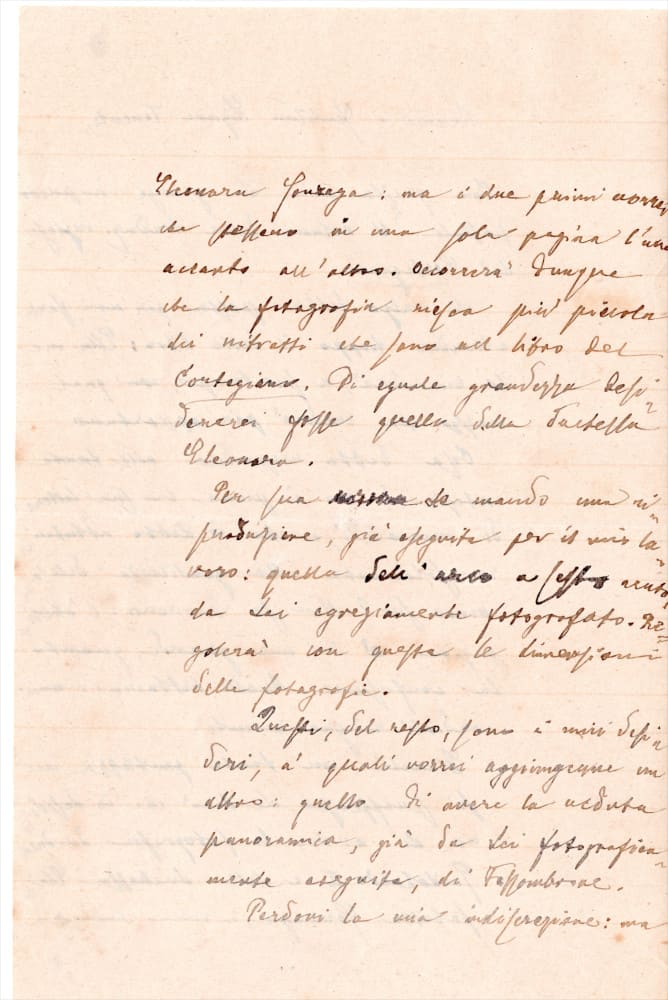 Eleonora Gonzaga: ma i due primi vorrei
che stessero in una sola pagina l'uno
accanto all'altro. Occorrerà dunque
che la fotografia riesca più piccola
dei ritratti che sono nel libro del
Cortegiano. Di eguale grandezza desi-
dererei fosse quello della duchessa
Eleonora.
Per sua Le mando una ri-
produzione, già eseguita per il mio la-
voro: quella dell'arco a sesto acuto
da Lei egregiamente fotografato. Re-
golerà con questa le dimensioni
delle fotografie.
Questi, del resto, sono i miei desi-
deri, a' quali vorrei aggiungerne un
altro: quello di avere la veduta
panoramica, già da Lei fotografica-
mente eseguita, di Fossombrone.
Perdoni la mia indiscrezione: ma